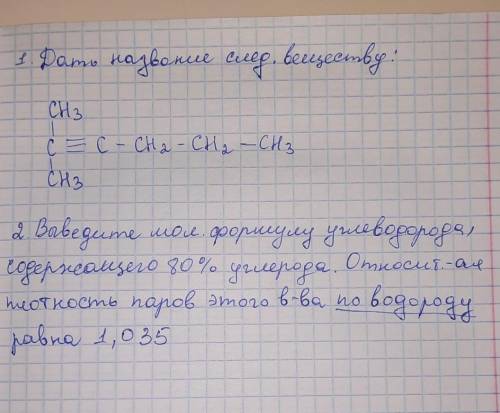 1. Дать название след. веществу:
CH3
C ≡ C - CH2 - CH2 - CH3
CH3
2 Выведите мол. формулу углеводорода,
содержащего 80% углерода. Относит.-ая
плотность паров этого в-ва по водороду
равна 1,035